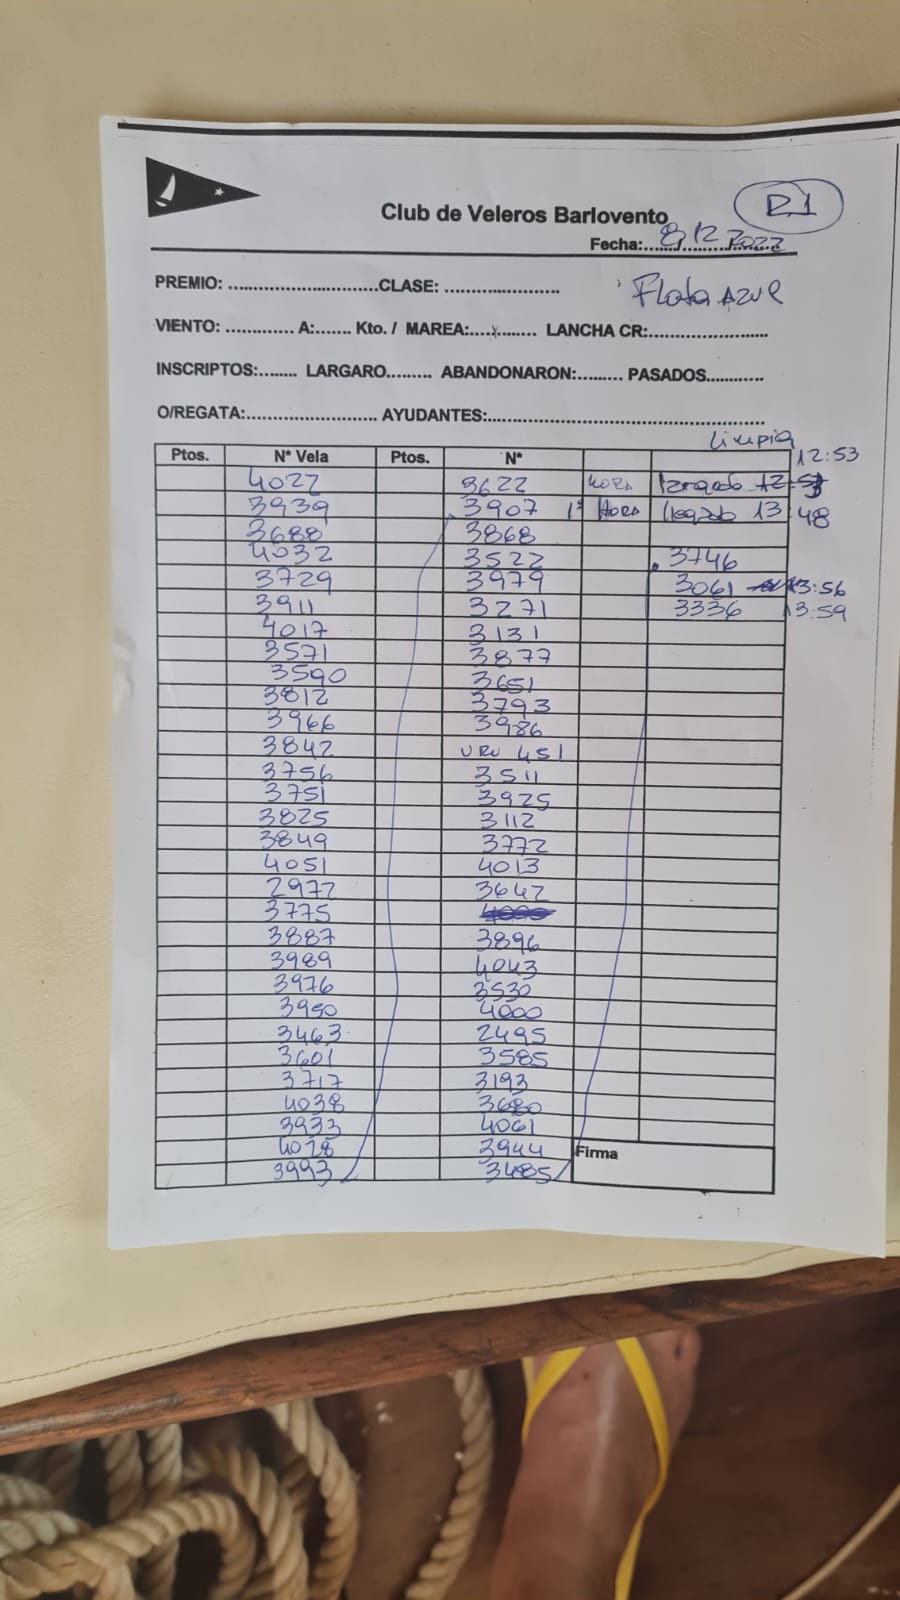 R1
Club de Veleros Barlovento
Fecha:....8/12 2022
PREMIO: ............................CLASE: ...................... Flota AZUL
VIENTO: ............. A:....... Kto. / MAREA:............. LANCHA CR:.......................
INSCRIPTOS:........ LARGARO......... ABANDONARON:......... PASADOS............
O/REGATA:......................... AYUDANTES:....................................................
Limpia
Ptos. N* Vela Ptos. N* 12:53
4022 3622 HORA largada
3939 3907 1ª HORA llegada 13:48
3688 3868
4032 3522 3746
3729 3979 3061 13:56
3911 3271 3336 13:59
4017 3131
3571 3877
3590 3651
3812 3793
3966 3986
3842 URU 451
3756 3511
3751 3925
3825 3112
3849 3772
4051 4013
2972 3642
3775 4000
3887 3896
3989 4043
3976 3530
3950 4000
3463 2495
3601 3585
3717 3193
4038 3680
3933 4061
4028 3944 Firma
3993 3485